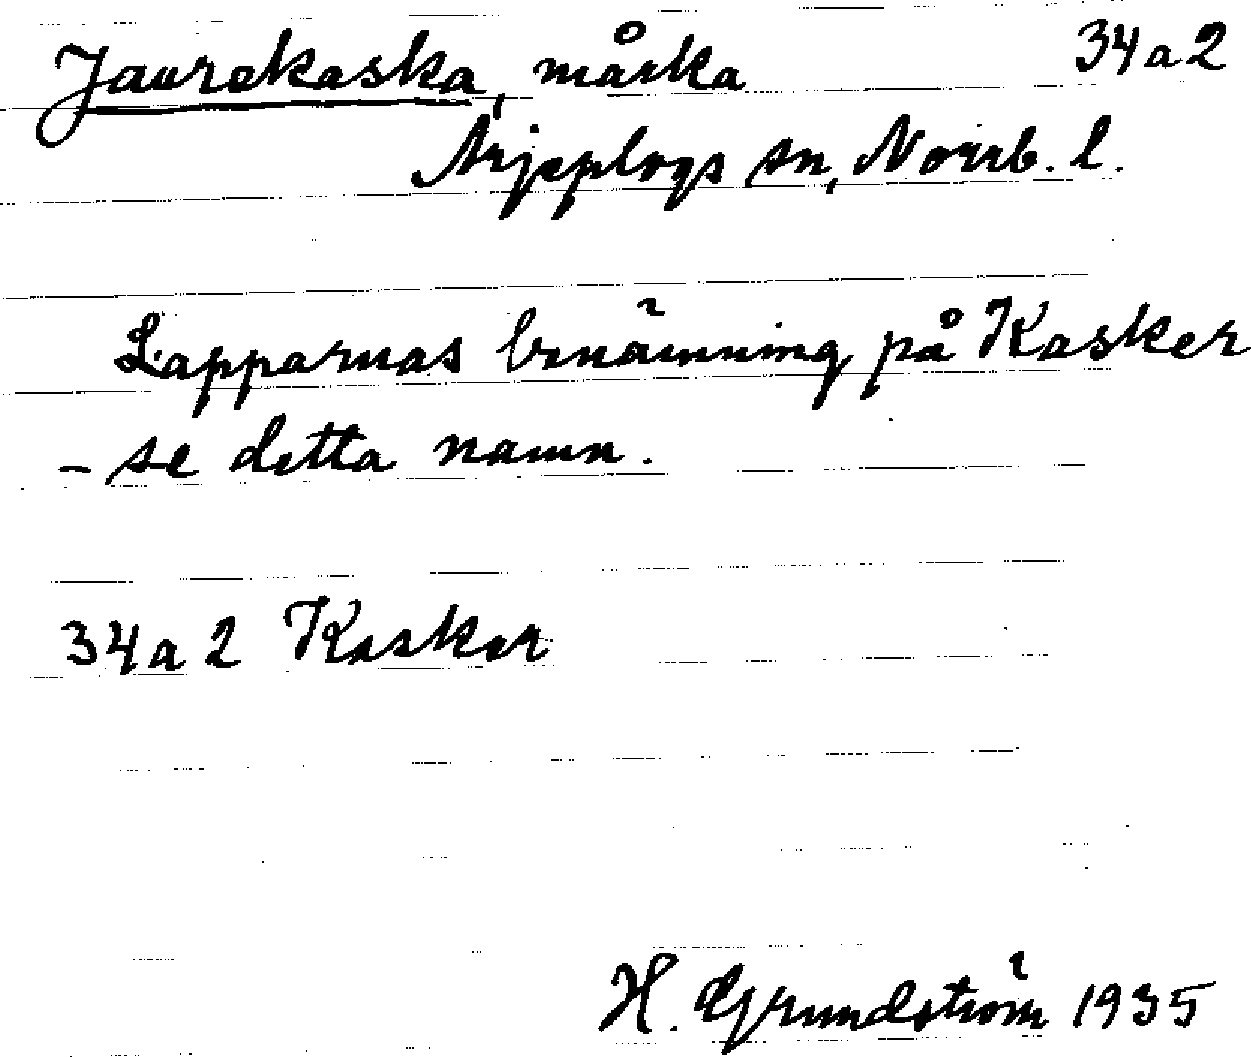 Jaurekaska, måska 34a2
Arjeplogs sn, Norrb. l.
Lapparnas benämning på Kasker
- se detta namn.
34a2 Kasker
H. Grundström 1935